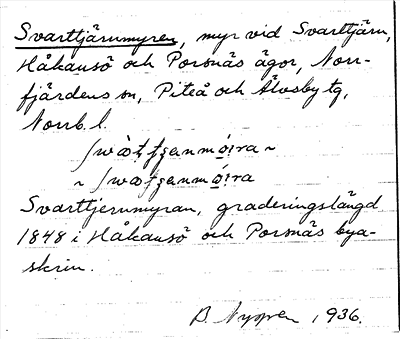 Svarttjärnmyren, myr vid Svarttjärn,
Håkansö och Porsnäs ägor, Norr-
fjärdens sn, Piteå och Älvsby tg,
Norrb. l.
~
~
Svarttjernmyran, graderingslängd
1848 i Håkansö och Porsnäs bya-
skrin.
B. Nyppen 1936.